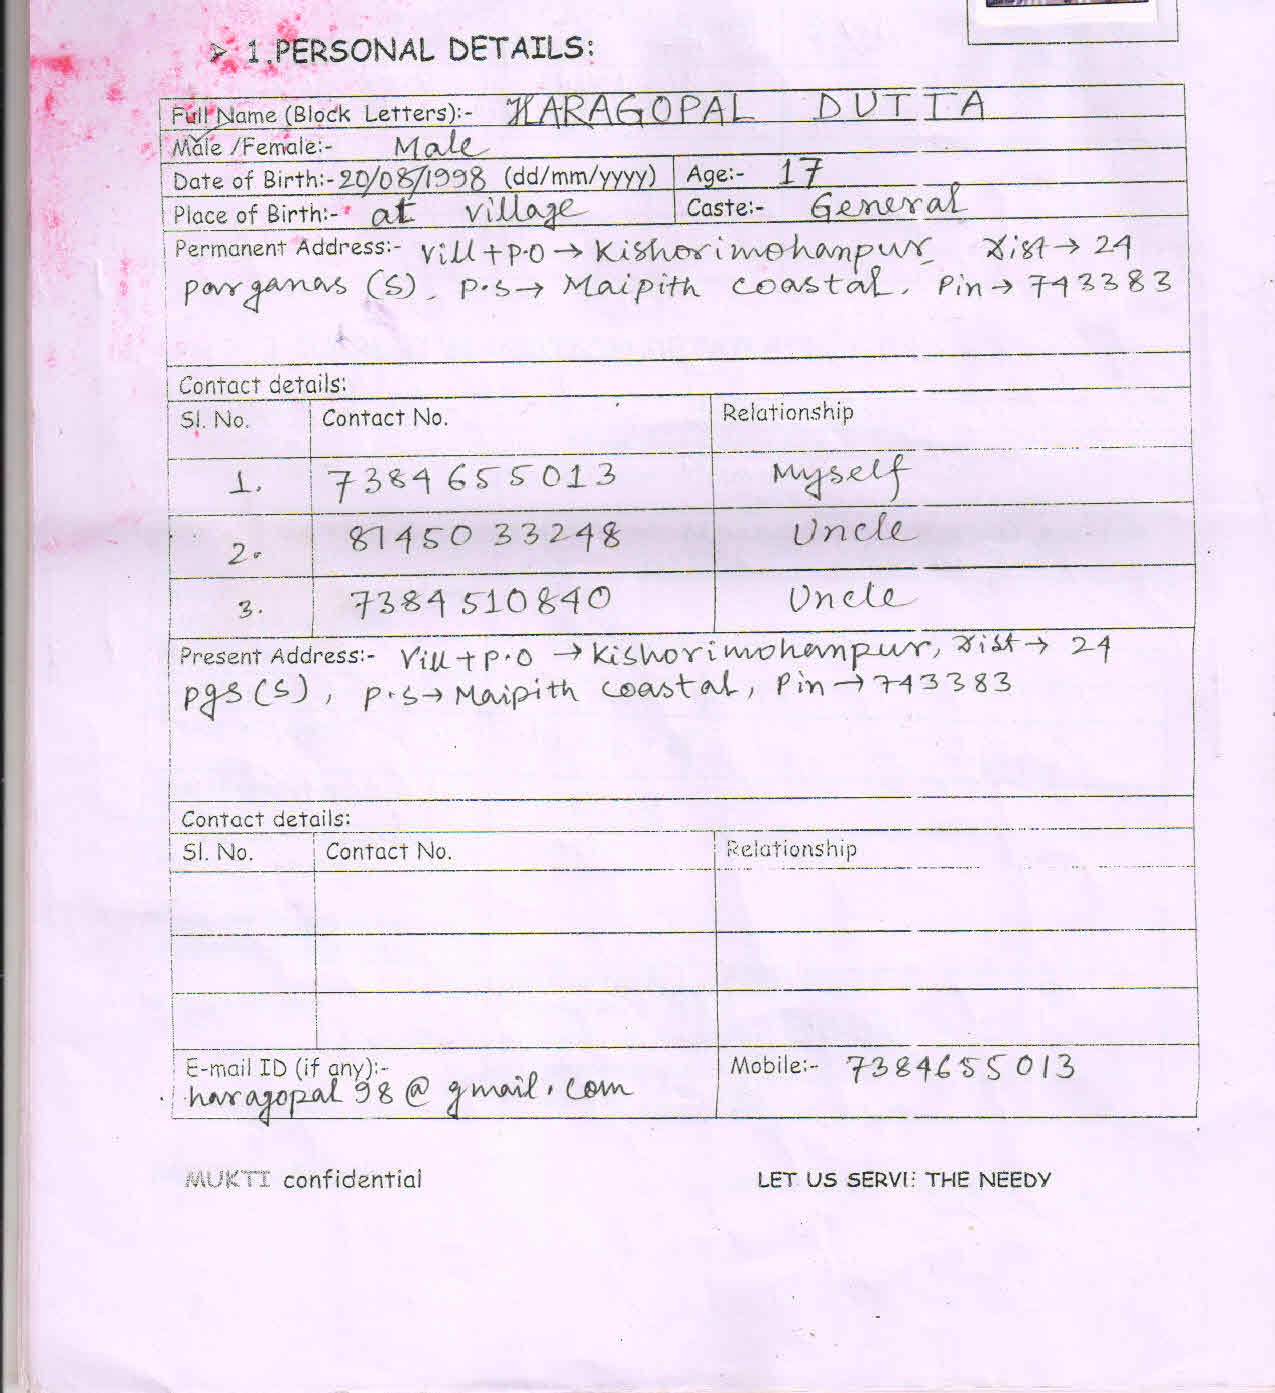 ➤ 1.PERSONAL DETAILS:
Full Name (Block Letters):- HARAGOPAL DUTTA
Male /Female:- Male
Date of Birth:- 20/08/1998 (dd/mm/yyyy) Age:- 17
Place of Birth:- at village Caste:- General
Permanent Address:- Vill+P.O → Kishorimohanpur, Dist → 24
parganas (S), P.S → Maipith coastal, Pin → 743383
Contact details:
Sl. No. Contact No. Relationship
1. 7384655013 Myself
2. 8145033248 Uncle
3. 7384510840 Uncle
Present Address:- Vill+P.O → Kishorimohanpur, Dist → 24
pgs (S), P.S → Maipith coastal, Pin → 743383
Contact details:
Sl. No. Contact No. Relationship
E-mail ID (if any):- Mobile:- 7384655013
haragopal98@gmail.com
MUKTI confidential LET US SERVE THE NEEDY